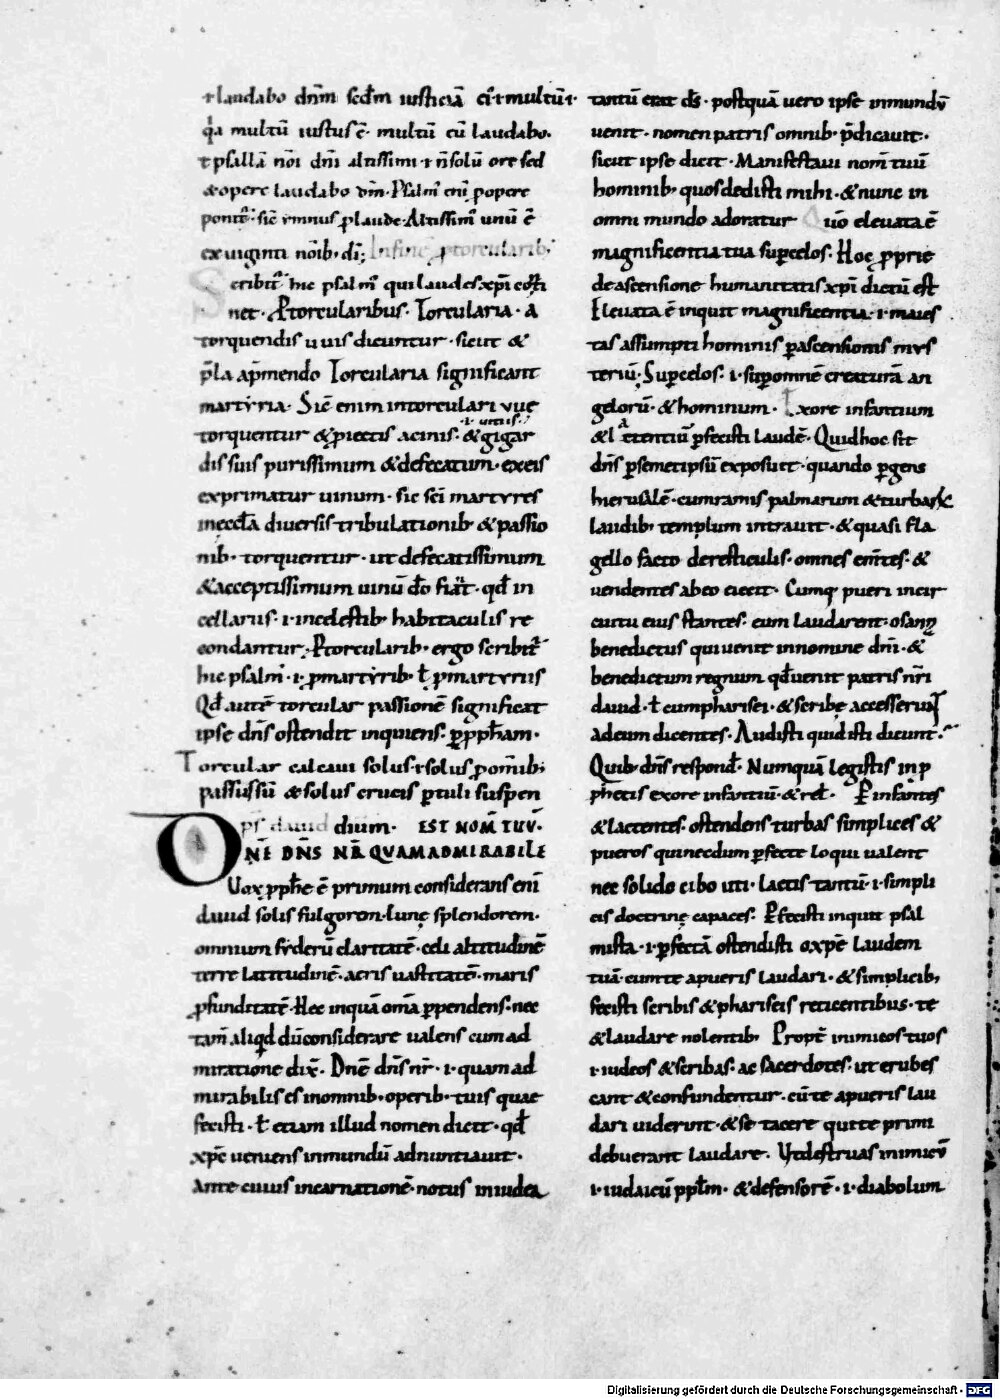 ⁊ laudabo dn̄m scđm iusticiā ei᷒ · ⁊ multū ·
q̄a multū iustus ē · multū eū laudabo ·
⁊ psallā nōi dn̄i altissimi · ⁊ n̄ solū ore sed
& opere laudabo dn̄m · Psalm᷒ eni᷒ p opere
ponit᷒ · sic̄ ymnus p laude · Altissim᷒ unū ē
ex uiginti nōib; di᷒; In finē p torcularib;
Scribit᷒ hic psalm᷒ qui laudes xp̄i
net · P torcularibus · Torcularia · a
torquendis uuis dicuntur · sicut &
p̄la ap̄mendo Torcularia significant
martyria · Sic̄ enim in torculari vuę
torquentur & p̄iectis acinis · & gigar · i · uuis
dis suis purissimum & defecatum · ex eis
exprimatur uinum · sic sc̄i martyres
in ęccl̄a diuersis tribulationib; & passio
nib; · torquentur · ut defecatissimum
& acceptissimum uinū dō fiat · qđ in
cellariis · i · in cęlestib; habitaculis re
condantur; P torcularib; ergo scribit᷒
hic psalm᷒ · i · p martyrib; ł p martyriis
Qđ autē torcular passionē significat
ipse dn̄s ostendit inquiens · p pp̄ham ·
Torcular calcaui solus · ⁊ solus p om̄ib;
passus sū & solus crucis p tuli suspen
ps̄ dauid dium · EST NOM̄ TUŪ ·
DNĒ DN̄S NR̄ QUAM ADMIRABILE
Uox pp̄hę ē primum considerans eni᷒
dauid solis fulgorem · lunę splendorem ·
omnium syderū claritatē · cęli altitudinē
terrę latitudinē · aeris uastitatē · maris
p funditatē · Hec inquā om̄a p pendens · nec
tam̄ aliqd dū considerare ualens cum ad
miratione dix̄ · Dn̄e dn̄s nr̄ · i · quam ad
mirabilis es in omnib; · operib; · tuis quae
fecisti · ł etiam illud nomen dicit · qđ
xp̄c ueniens in mundū adnuntiauit ·
Ante cuius incarnationē · notus in iudea
tantū erat dś · postquā uero ipse in mundū
uenit · nomen patris omnib; p̄dicauit ·
sicut ipse dicit · Manifestaui nom̄ tuū
hominib; quos dedisti mihi · & nunc in
omni mundo adoratur Qūo eleuata ē
magnificentia tua sup cęlos · Hoc p prie
de ascensione humanitatis xp̄i dictū est
Eleuata ē inquit magnificentia · i · maies
tas assumpti hominis p ascensionis mys
teriū · Sup cęlos · i · sup omnē creaturā an
gelorū · & hominum · Ex ore infantium
& lactentiū p fecisti laudē · Quid hoc sit
dn̄s p semetipsū exposuit · quando p gens
hierusalē · cum ramis palmarum & turbarꝝ
laudib; templum intrauit · & quasi fla
gello facto de resticulis · omnes em̄tes · &
uendentes ab eo eiecit · Cumq; pueri in cir
cuitu eius stantes · eum laudarent · osanṇ
benedictus qui uenit in nomine dn̄i · &
benedictum regnum qđ uenit patris nr̄i
dauid · ł cum pharisei · & scribę accesserunt
ad eum dicentes · Audisti quid isti dicunt ·
Quib; dn̄s respond̄ · Numquā legistis in p
phetis ex ore infantiū · & rel̄ · P infantes
& lactentes · ostendens turbas simplices &
pueros qui necdum p fecte loqui ualent
nec solido cibo uti · lactis tantū · i · simpli
cis doctrinę capaces · P fecisti inquit psal
mista · i · p fectā ostendisti o xp̄e laudem
tuā · cum te a pueris laudari · & simplicib;
fecisti scribis & phariseis reticentibus · te
& laudare nolentib; Propt̄ inimicos tuos
· i · iudeos & scribas · ac sacerdotes · ut erubes
cant & confundentur · cū te a pueris lau
dari uiderint · & se tacere qui te primi
debuerant laudare · Ut destruas inimicū
· i · iudaicū pp̄lm · & defensorē · i · diabolum
Digitalisierung gefördert durch die Deutsche Forschungsgemeinschaft - DFG